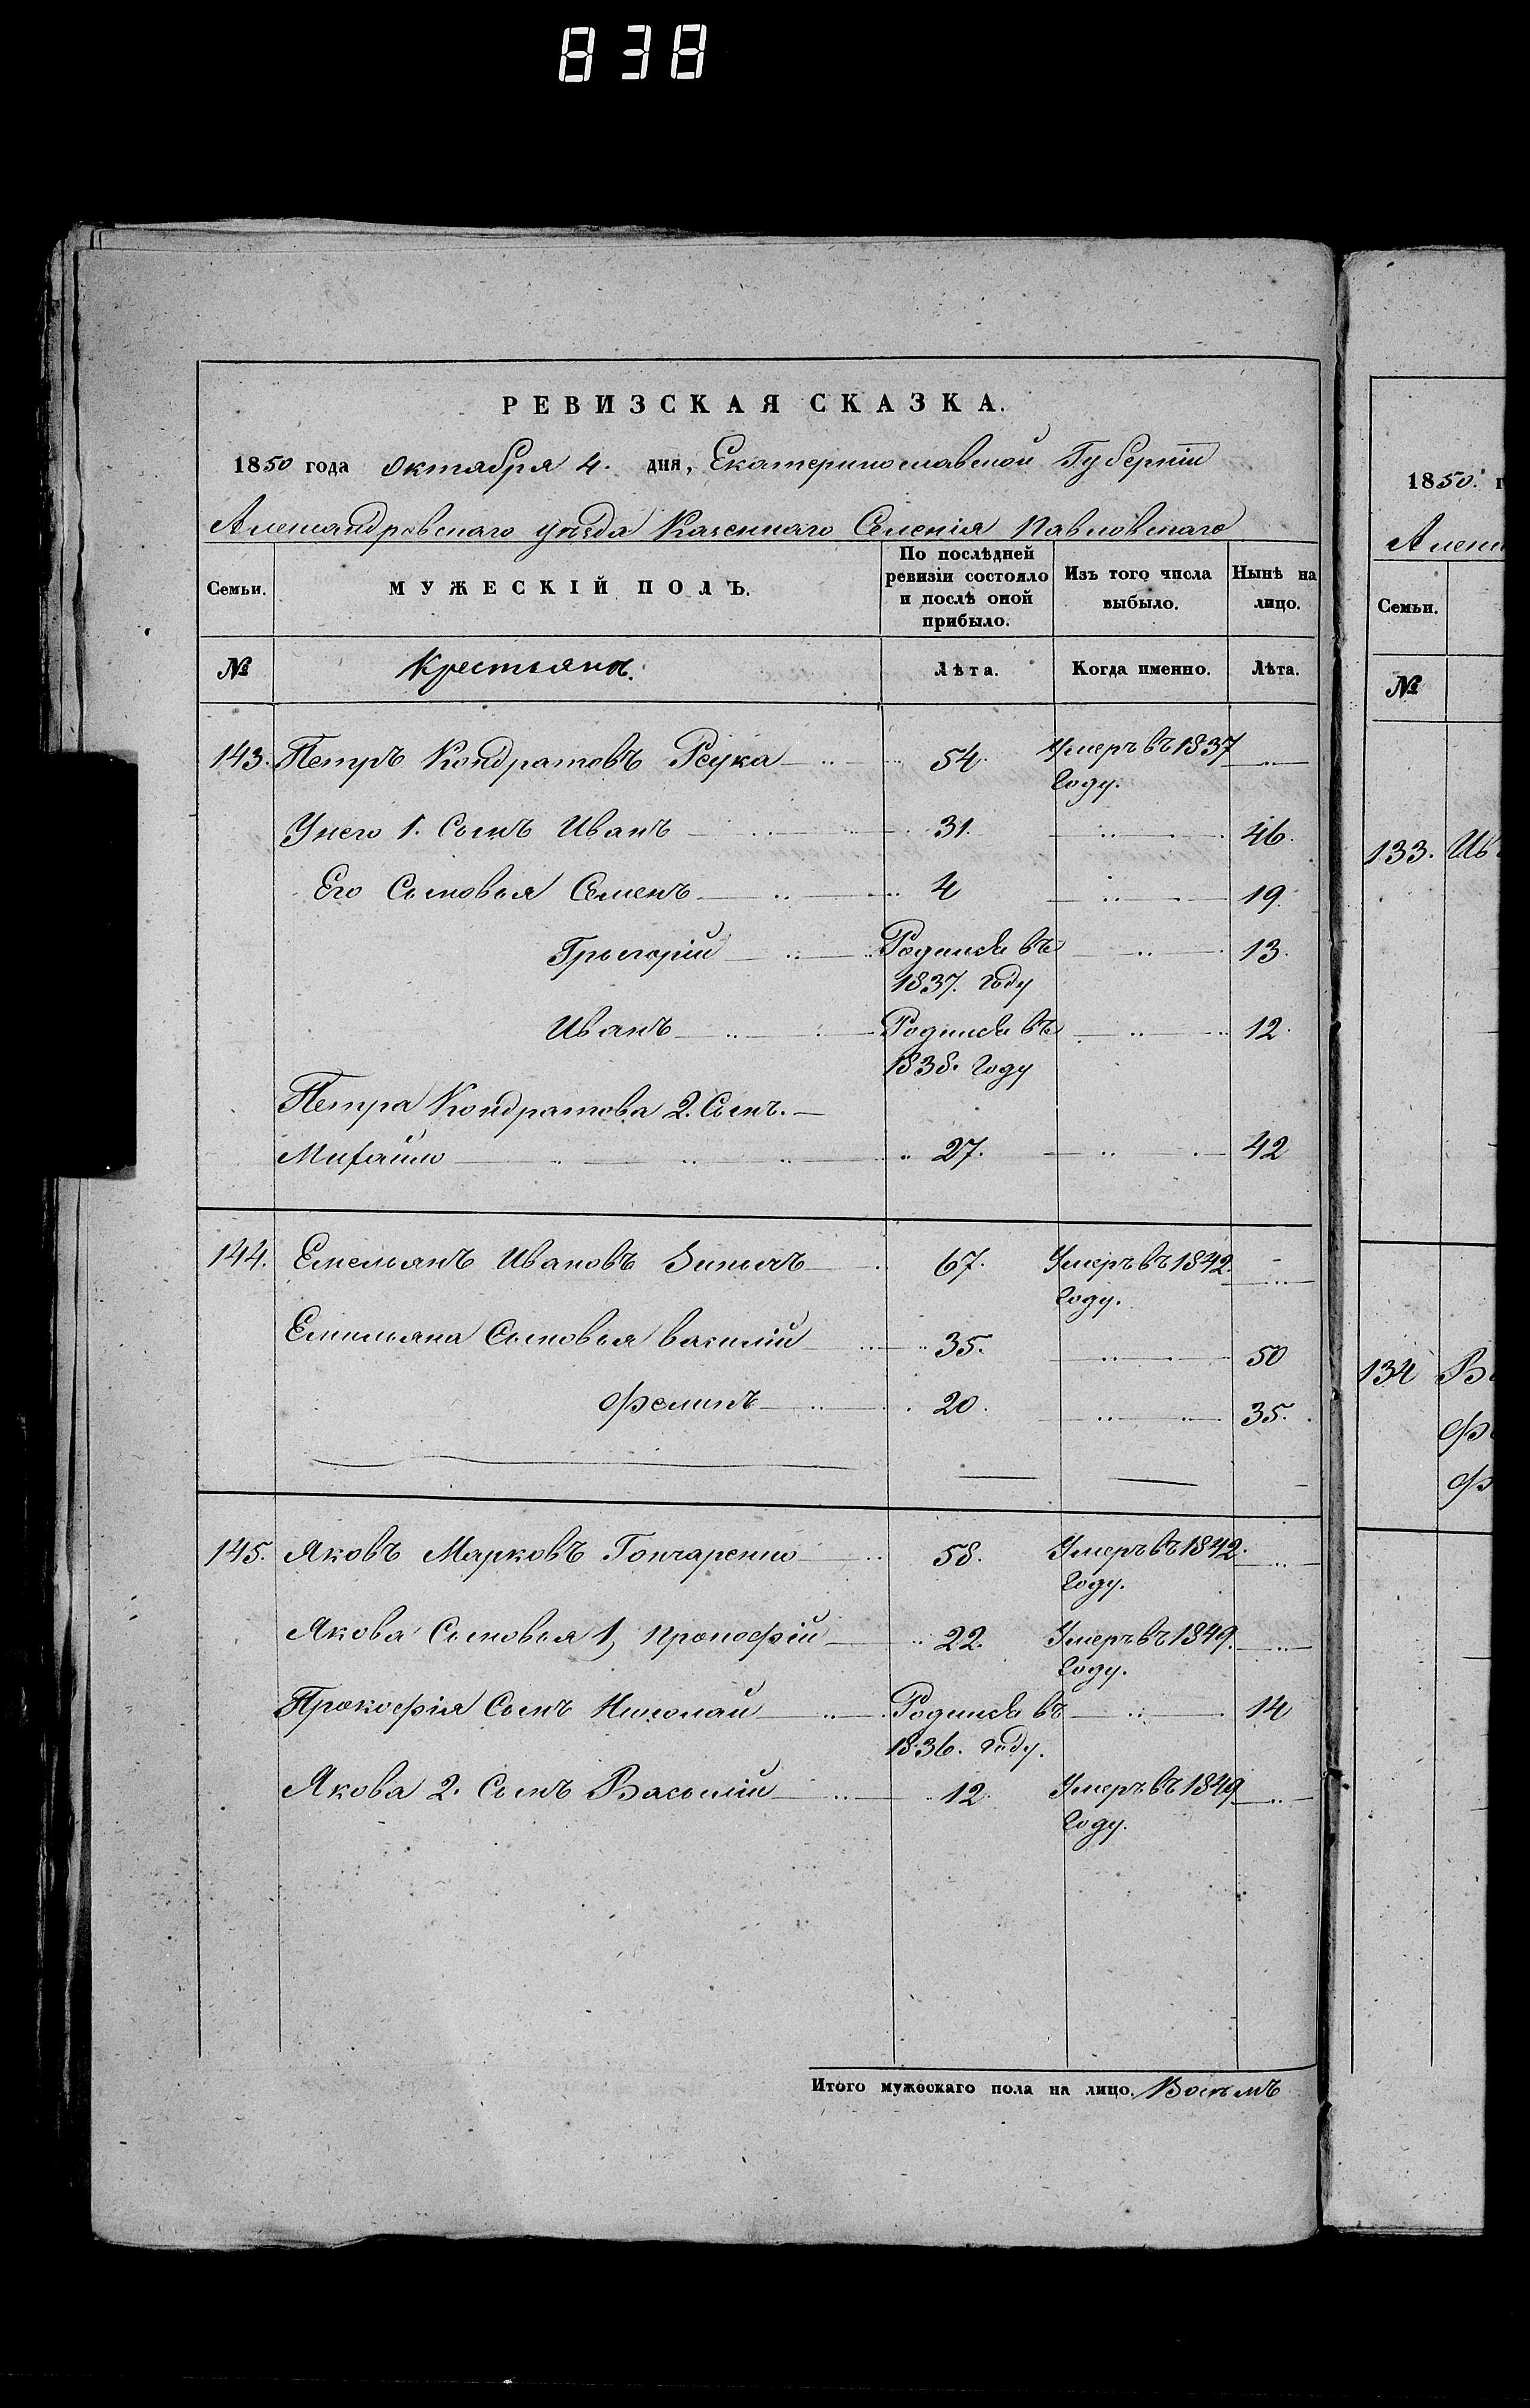 838
РЕВИЗСКАЯ СКАЗКА.
1850 года октября 4. дня, Екатеринославской Губерніи
Александровскаго уѣзда Казеннаго Селенія Павловскаго
Семьи. МУЖЕСКІЙ ПОЛЪ. По послѣдней ревизіи состояло и послѣ оной прибыло. Изъ того числа выбыло. Нынѣ на лицо.
№ Крестьяне. Лѣта. Когда именно. Лѣта.
143. Петръ Кондратовъ 54. Умеръ въ 1837
Году.
Унего 1. Сынъ Иванъ 31. 46.
Его Сыновья Семенъ 4 19.
Григорій Родился въ 13.
1837. году
Иванъ Родился въ 12.
1838. Году
Петра Кондратова 2. Сынъ.
Михайло 27. 42
144. Емельянъ Ивановъ 67. Умеръ въ 1842.
Году.
Емельяна Сыновья василій 35. 50
Филипъ 20. 35.
145. Яковъ Марковъ Гончаренко 58. Умеръ въ 1842.
Году.
Якова Сыновья 1, Прокофій 22. Умеръ въ 1849.
Году.
Прокофія Сынъ Николай Родился въ 14
1836. году.
Якова 2. Сынъ Василій 12. Умеръ въ 1849
Году.
Итого мужескаго пола на лицо. Восемъ
1850. г
Семьи.
№
133. Ив
134